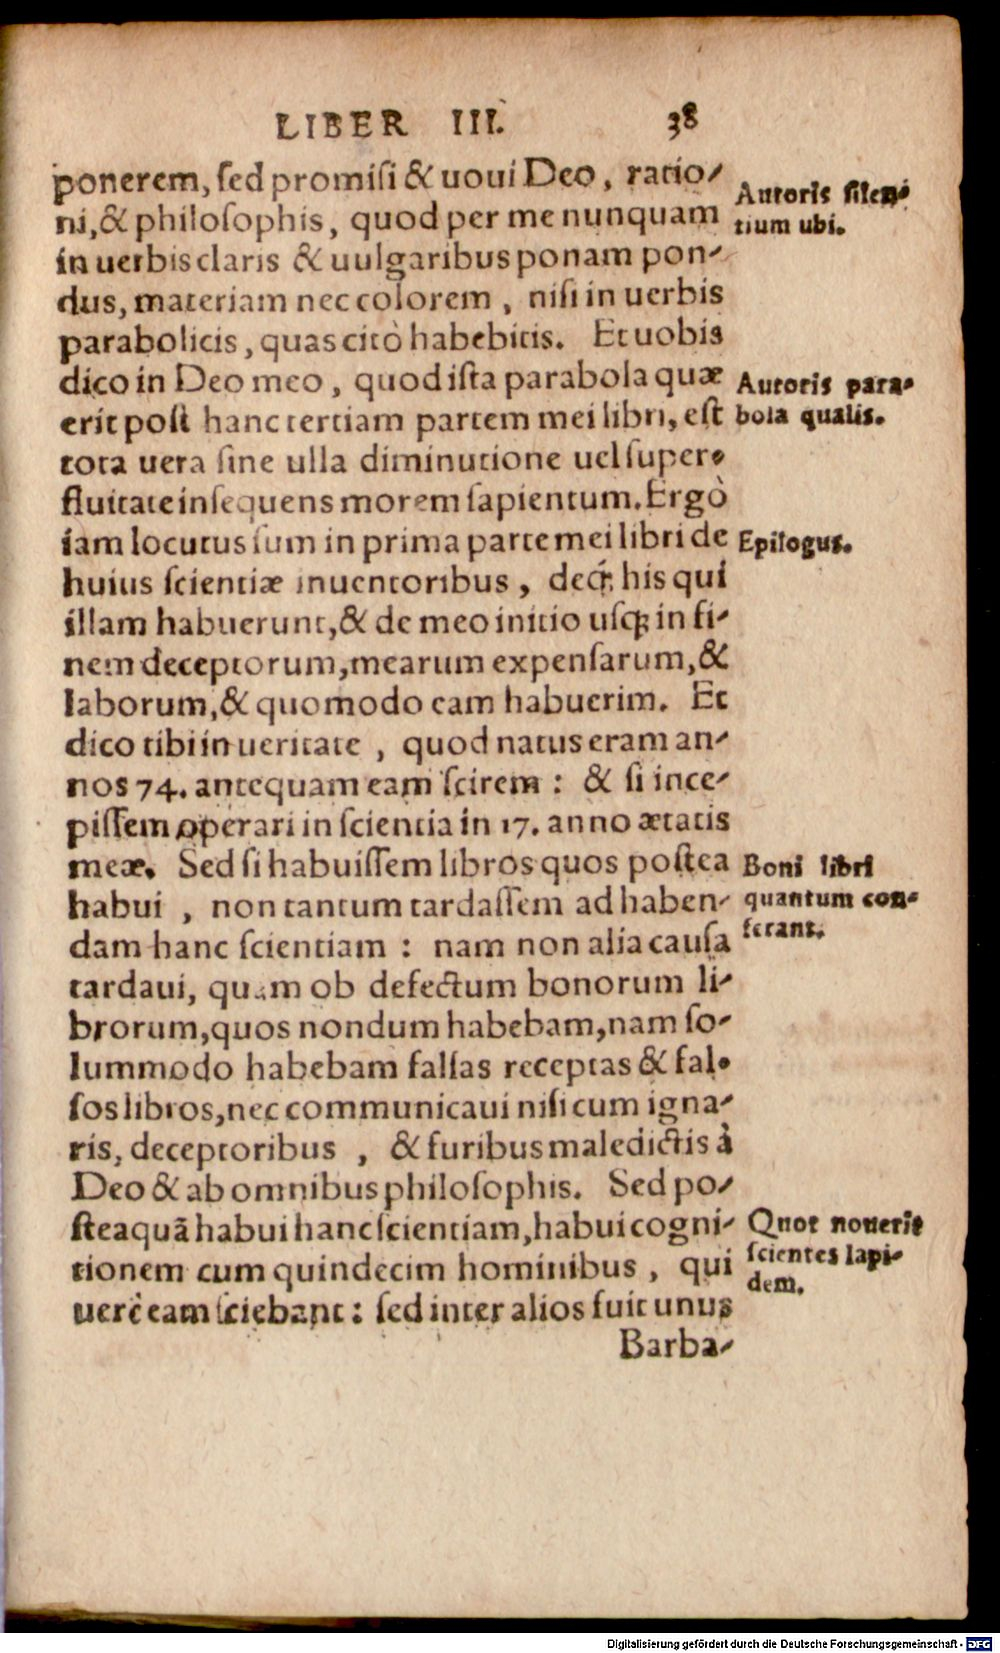 LIBER III. 38
ponerem, sed promisi & uoui Deo, ratio-
ni, & philosophis, quod per me nunquam
in uerbis claris & uulgaribus ponam pon-
dus, materiam nec colorem, nisi in uerbis
parabolicis, quas citò habebitis. Et uobis
dico in Deo meo, quod ista parabola quæ
erit post hanc tertiam partem mei libri, est
tota uera sine ulla diminutione uel super-
fluitate insequens morem sapientum. Ergò
iam locutus sum in prima parte mei libri de
huius scientiæ inuentoribus, deq́; his qui
illam habuerunt, & de meo initio usq; in fi-
nem deceptorum, mearum expensarum, &
laborum, & quomodo eam habuerim. Et
dico tibi in ueritate, quod natus eram an-
nos 74. antequam eam scirem: & si ince-
pissem operari in scientia in 17. anno ætatis
meæ. Sed si habuissem libros quos postea
habui, non tantum tardassem ad haben-
dam hanc scientiam: nam non alia causa
tardaui, quam ob defectum bonorum li-
brorum, quos nondum habebam, nam so-
lummodo habebam falsas receptas & fal-
sos libros, nec communicaui nisi cum igna-
ris, deceptoribus, & furibus maledictis à
Deo & ab omnibus philosophis. Sed po-
steaquā habui hanc scientiam, habui cogni-
tionem cum quindecim hominibus, qui
uerè eam sciebant: sed inter alios fuit unus
Barba-
Autoris silen-
tium ubi.
Autoris para-
bola qualis.
Epilogus.
Boni libri
quantum con-
ferant.
Quot nouerit
scientes lapi-
dem.
Digitalisierung gefördert durch die Deutsche Forschungsgemeinschaft - DFG